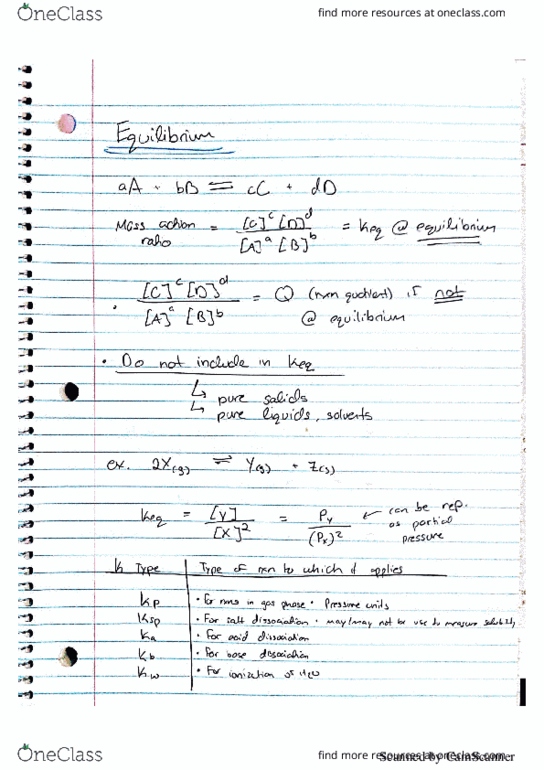 OneClass
find more resources at oneclass.com
Equilibrium
aA + bB ⇌ cC + dD
Mass action ratio = [C]^c [D]^d / [A]^a [B]^b = Keq @ equilibrium
• [C]^c [D]^d / [A]^a [B]^b = Q (rxn quotient) if not @ equilibrium
• Do not include in Keq
↳ pure solids
↳ pure liquids, solvents
ex. 2X(g) ⇌ Y(g) + Z(s)
Keq = [Y] / [X]^2 = Py / (Px)^2 ← can be rep. as partial pressure
K Type | Type of rxn to which it applies
Kp | • For rxns in gas phase • Pressure units
Ksp | • For salt dissociation • may/may not be use to measure solubility
Ka | • For acid dissociation
Kb | • For base dissociation
Kw | • For ionization of H2O
OneClass
find more resources at oneclass.com
Scanned by CamScanner